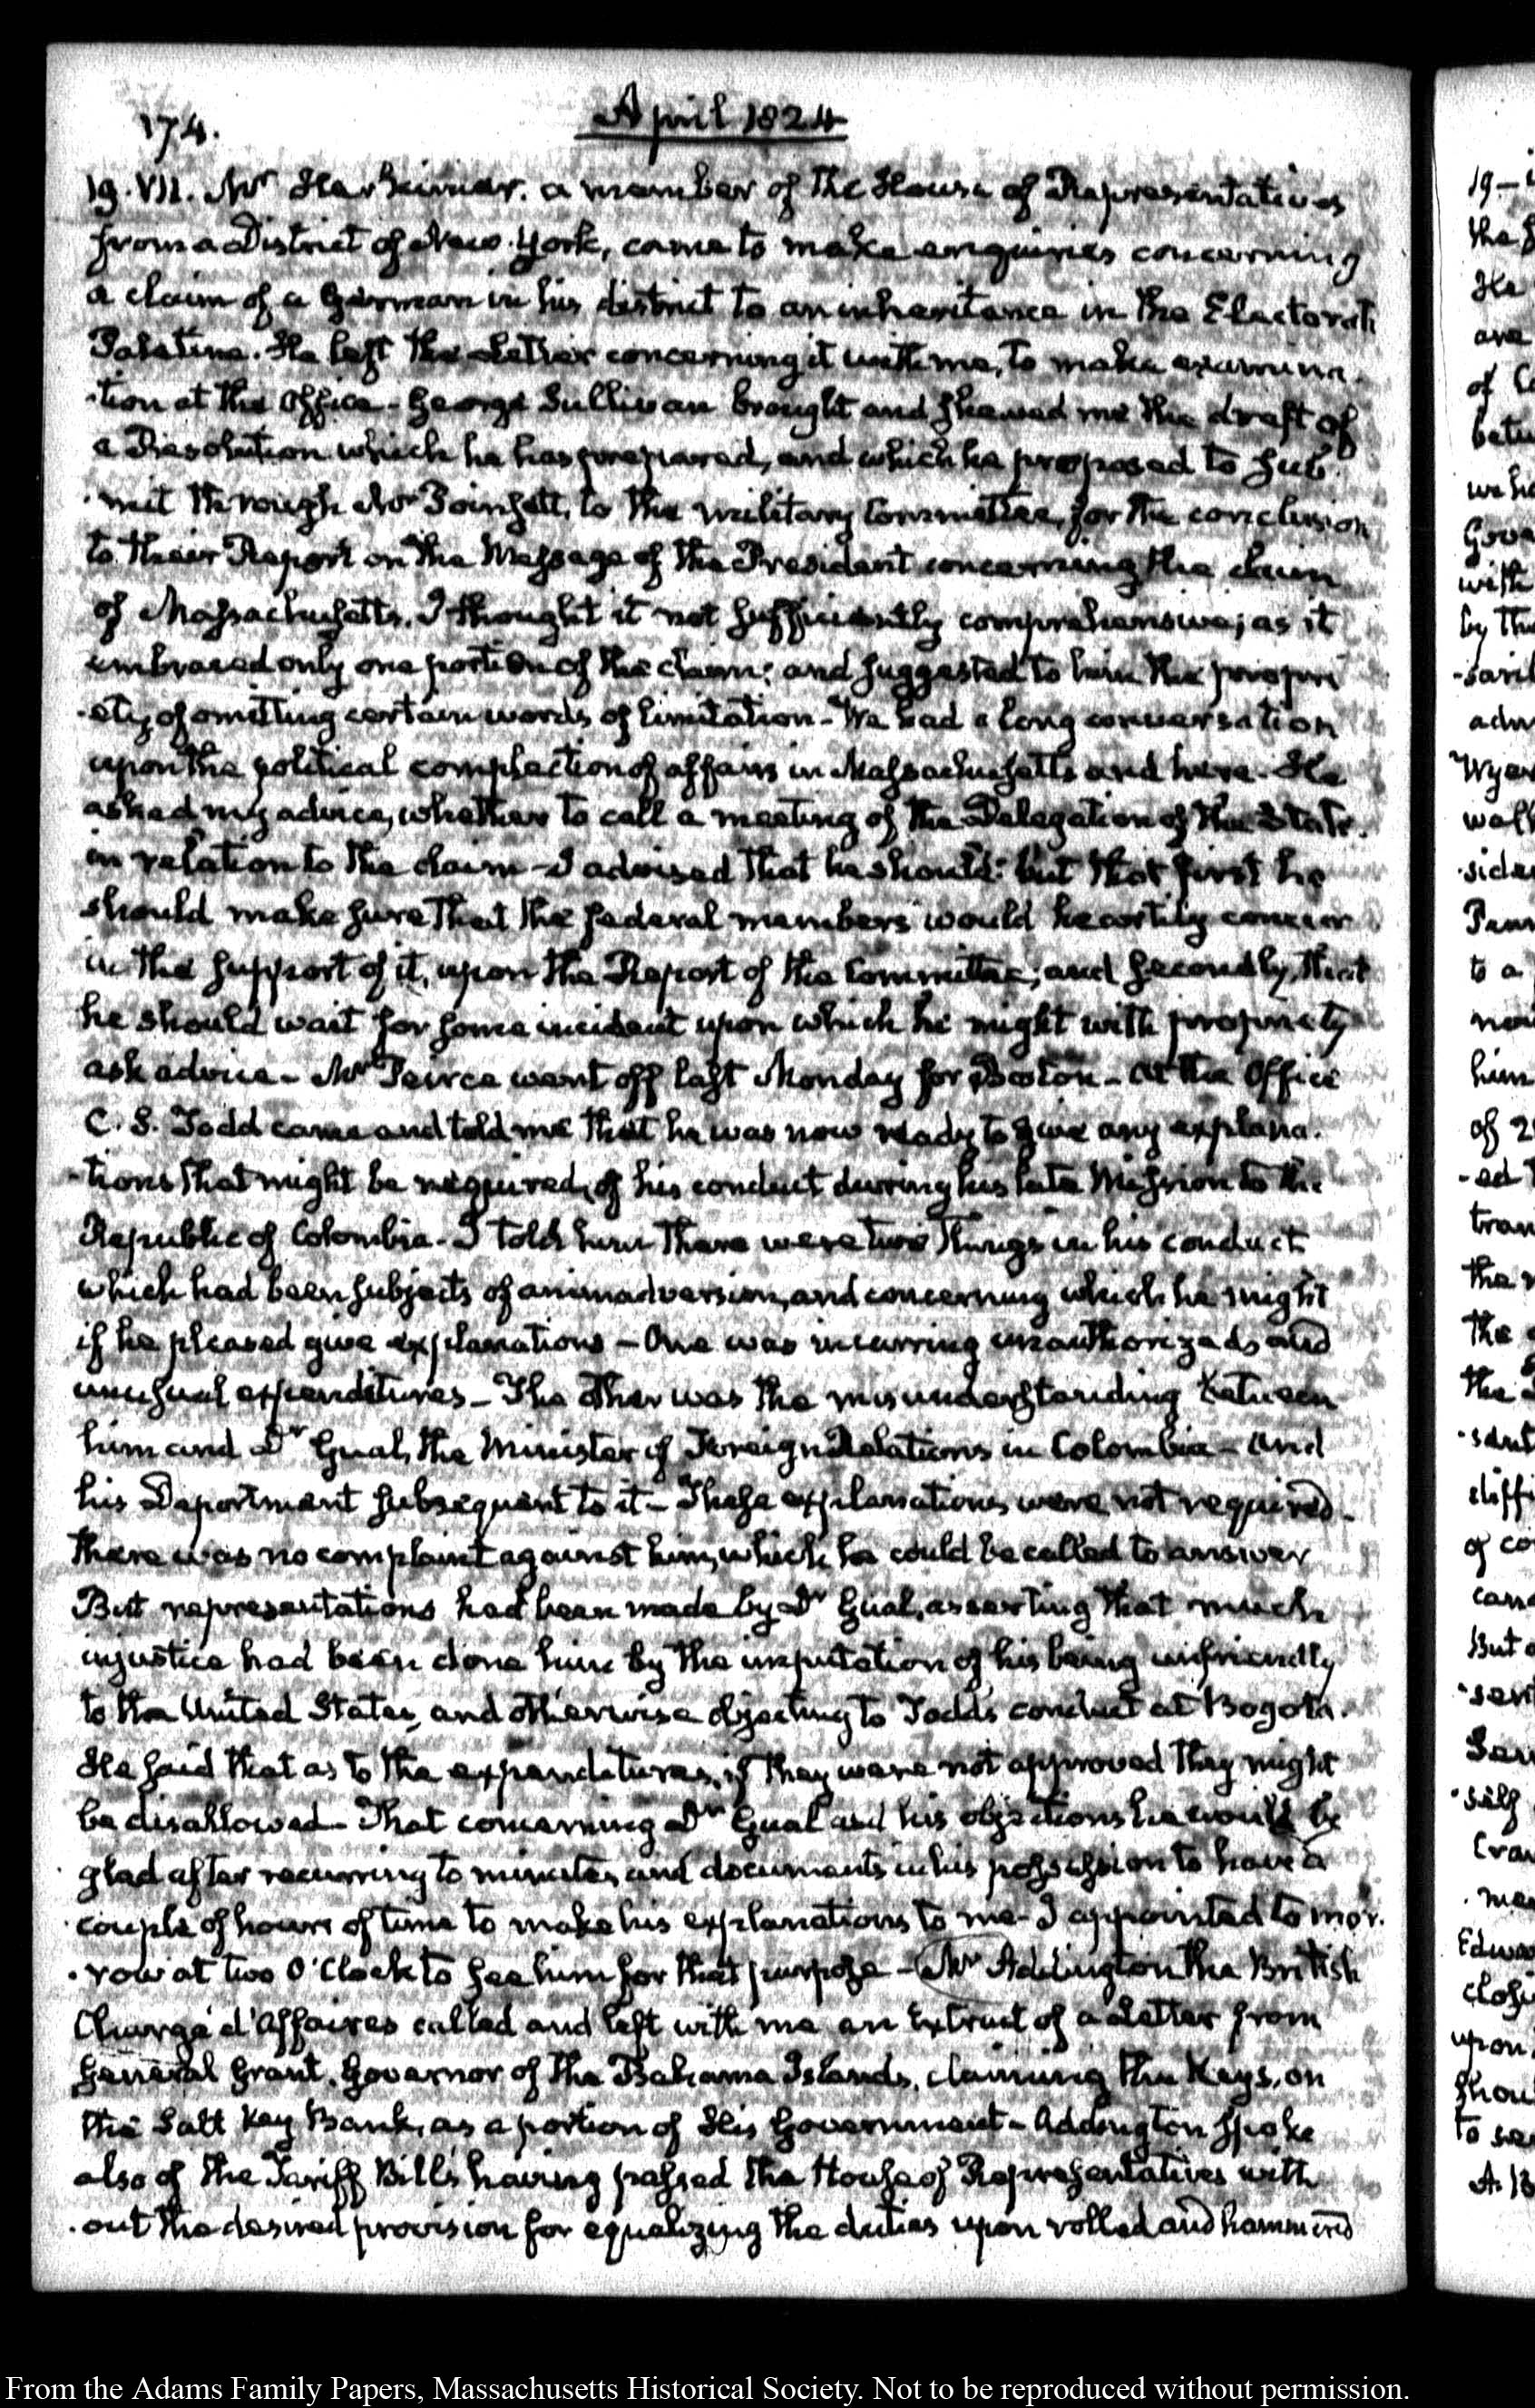 174.
April 1824
19. VII. Mr Herkimer. a member of the House of Representatives
from a District of New-York, came to make enquiries concerning
a claim of a German in his district to an inheritance in the Electorate
Palatine. He left the Letter concerning it with me, to make examina-
-tion at the Office - George Sullivan brought and shewed me the draft of
a Resolution which he has prepared, and which he proposed to sub-
-mit through Mr Poinsett, to the military Committee, for the conclusion
to their Report on the Message of the President concerning the claim
of Massachusetts. I thought it not sufficiently comprehensive; as it
embraced only one portion of the claim: and suggested to him the propri
-ety of omitting certain words of limitation - We had a long conversation
upon the political complection of affairs in Massachusetts and here. He
asked my advice, whether to call a meeting of the Delegation of the State.
in relation to the claim - I advised that he should: but that first he
should make sure that the federal members would heartily concur
in the support of it, upon the Report of the Committee; and secondly, that
he should wait for some incident upon which he might with propriety
ask advice - Mr Peirce went off last Monday for Boston - At the Office
C. S. Todd came and told me that he was now ready to give any explana-
-tions that might be required, of his conduct during his late Mission to the
Republic of Colombia - I told him there were two things in his conduct
which had been subjects of animadversion, and concerning which he might
if he pleased give explanations - One was incurring unauthorized and
unusual expenditures - The other was the misunderstanding between
him and Dr Gual, the Minister of Foreign Relations in Colombia - and
his Deportment subsequent to it - These explanations were not required -
there was no complaint against him, which he could be called to answer
But representations had been made by Dr Gual, asserting that much
injustice had been done him by the imputation of his being unfriendly
to the United States, and otherwise objecting to Todd's conduct at Bogota.
He said that as to the expenditures, if they were not approved they might
be disallowed - That concerning Dr Gual and his objections he would be
glad after recurring to minutes and documents in his possession to have a
couple of hours of time to make his explanations to me - I appointed to mor-
-row at two O'Clock to see him for that purpose - Mr Addington the British
Chargé d'Affaires called and left with me an Extract of a Letter from
General Grant, Governor of the Bahama Islands, claiming the Keys, on
the Salt Key Bank, as a portion of His Government - Addington spoke
also of the Tariff Bill's having passed the House of Representatives with
-out the desired provision for equalizing the duties upon rolled and hammered
From the Adams Family Papers, Massachusetts Historical Society. Not to be reproduced without permission.